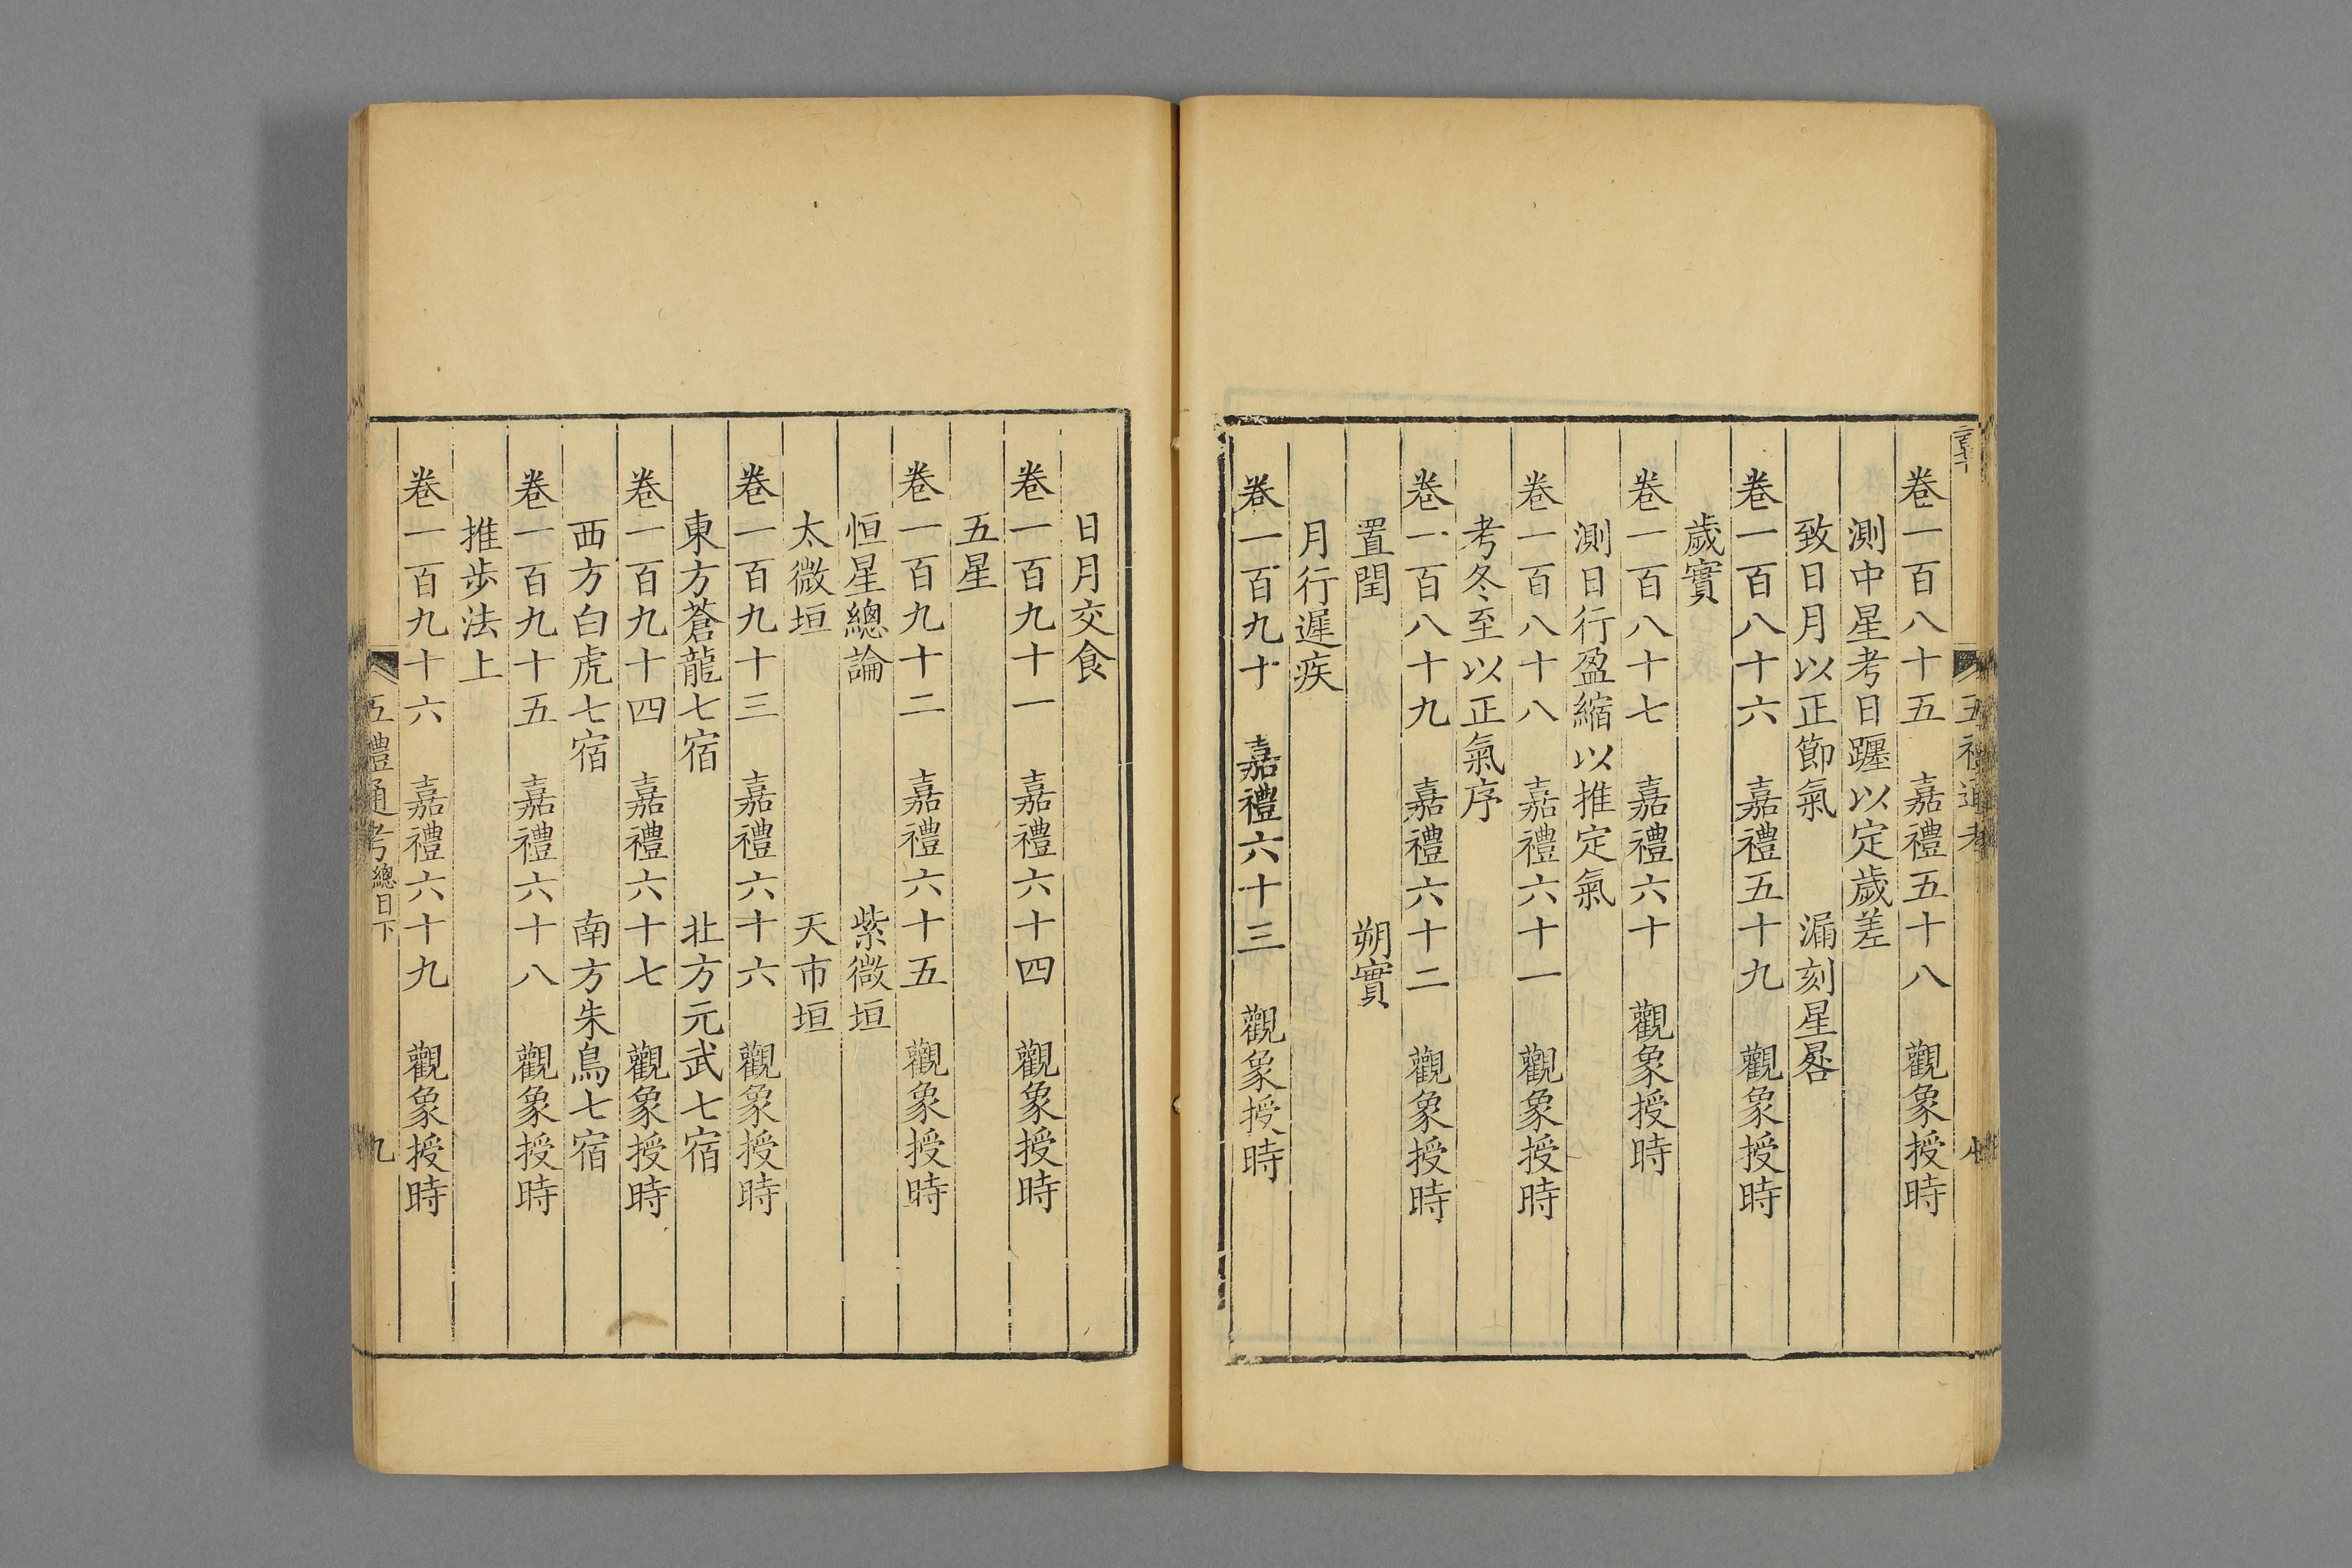 五禮通考
卷一百八十五　嘉禮五十八　觀象授時
測中星考日躔以定歲差
致日月以正節氣　漏刻星晷
卷一百八十六　嘉禮五十九　觀象授時
歲實
卷一百八十七　嘉禮六十　觀象授時
測日行盈縮以推定氣
卷一百八十八　嘉禮六十一　觀象授時
考冬至以正氣序
卷一百八十九　嘉禮六十二　觀象授時
置閏　朔實
月行遲疾
卷一百九十　嘉禮六十三　觀象授時
日月交食
卷一百九十一　嘉禮六十四　觀象授時
五星
卷一百九十二　嘉禮六十五　觀象授時
恒星總論　紫微垣
太微垣　天市垣
卷一百九十三　嘉禮六十六　觀象授時
東方蒼龍七宿　北方元武七宿
卷一百九十四　嘉禮六十七　觀象授時
西方白虎七宿　南方朱鳥七宿
卷一百九十五　嘉禮六十八　觀象授時
推步法上
卷一百九十六　嘉禮六十九　觀象授時
五禮通考總目下　九